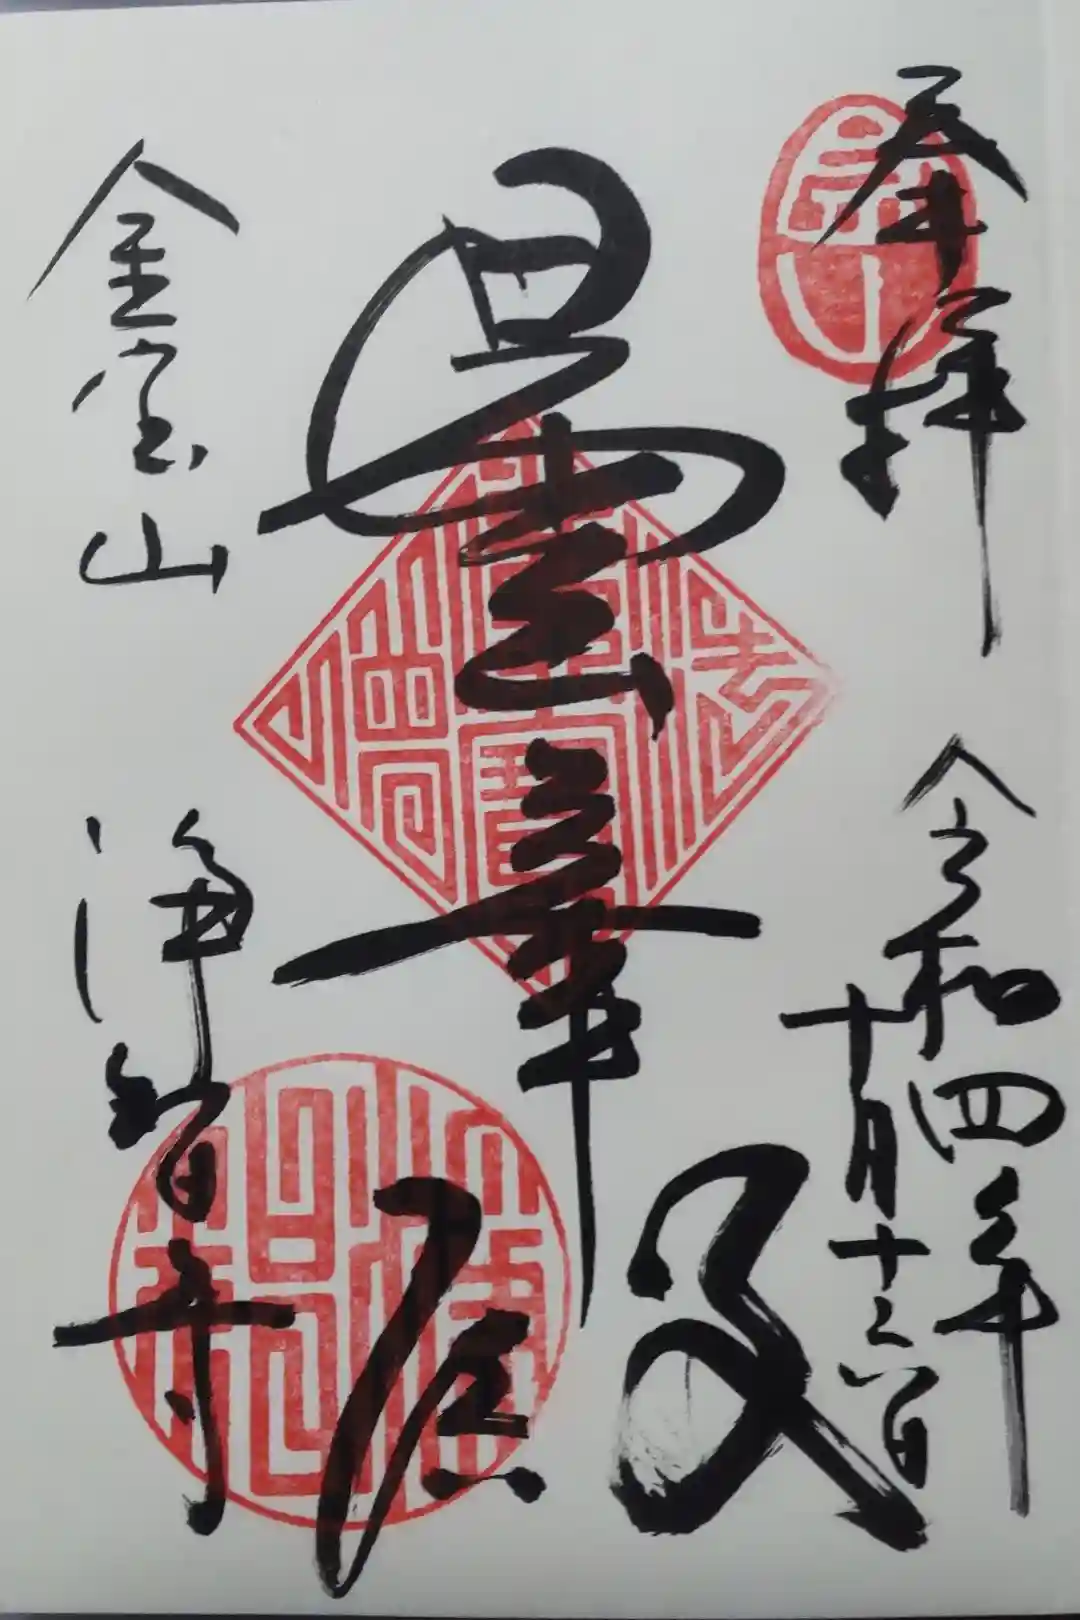 奉拝
令和四年
十月十六日
曇華殿
金宝山
浄智寺